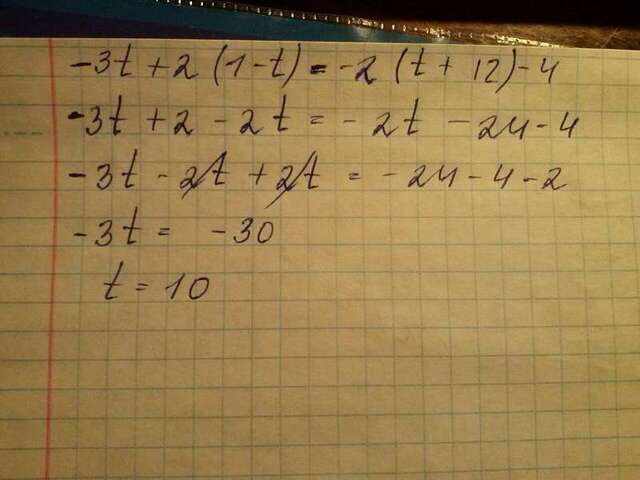 -3t + 2 (1 - t) = -2 (t + 12) - 4
-3t + 2 - 2t = - 2t - 24 - 4
-3t - 2t + 2t = - 24 - 4 - 2
-3t = -30
t = 10